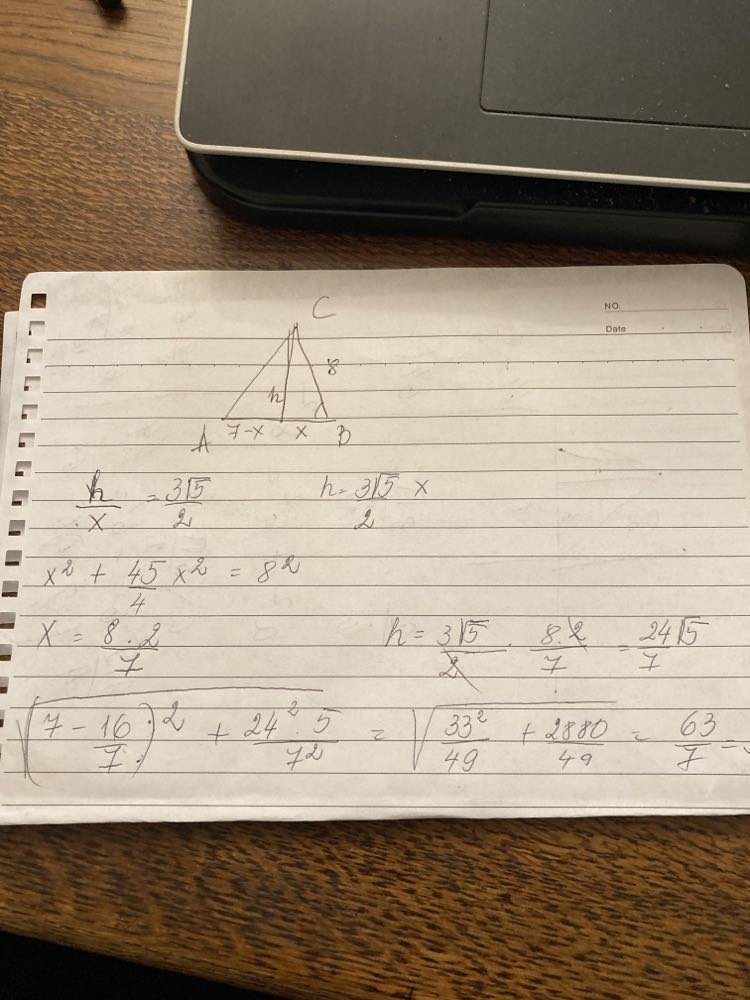 NO.
Date
C
8
h
A 7-x x B
h/x = 3√5/2 h = 3√5/2 x
x² + 45/4 x² = 8²
x = 8·2/7 h = 3√5/2 · 8·2/7 = 24√5/7
√((7 - 16/7)² + 24²·5/7²) = √(33²/49 + 2880/49) = 63/7 =